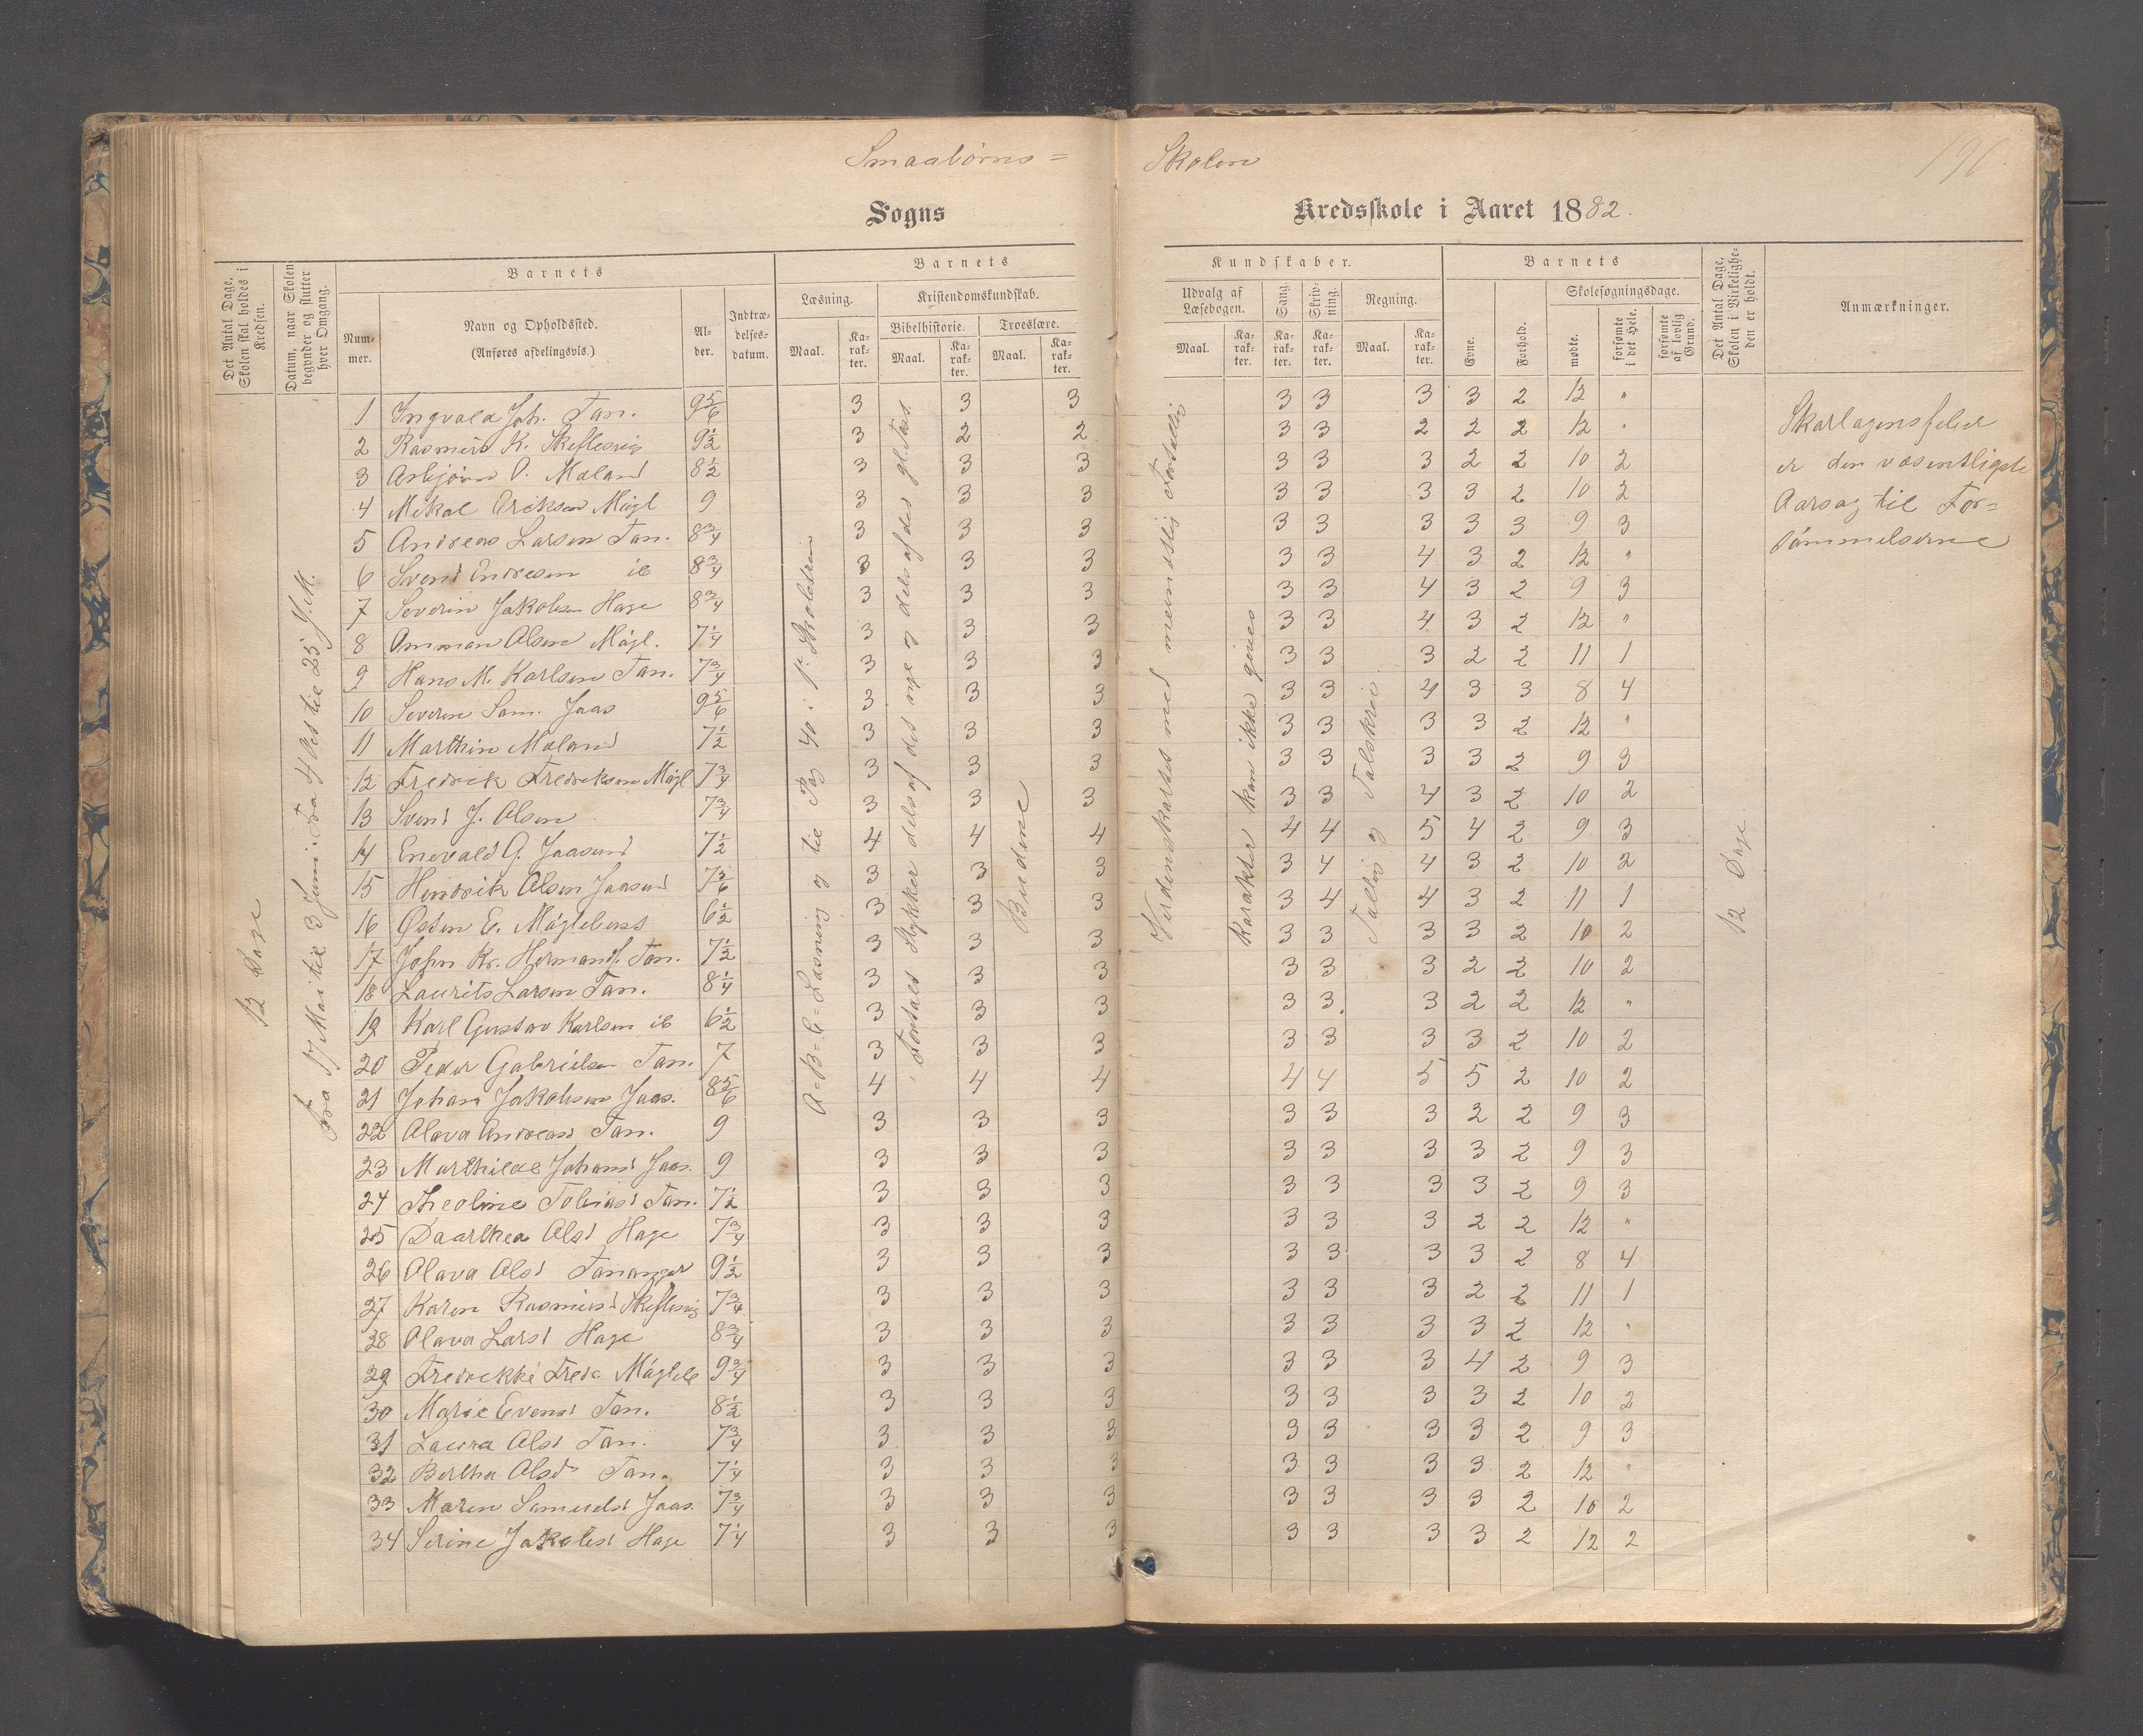 Smaabørns =
Skolen
196
Sogns
Kredsskole i Aaret 1882.
Det Antal Dage, Skolen skal holdes i Kredsen.
Datum, naar Skolen begynder og slutter hver Omgang.
Barnets
Num-mer.
Navn og Opholdssted.
(Anføres afdelingsvis.)
Al-der.
Indtræ-delses-datum.
Barnets
Læsning.
Kristendomskundskab.
Bibelhistorie.
Troeslære.
Maal.
Ka-rak-ter.
Maal.
Ka-rak-ter.
Maal.
Ka-rak-ter.
Kundskaber.
Udvalg af Læsebogen.
Sang.
Skriv-ning.
Regning.
Maal.
Ka-rak-ter.
Ka-rak-ter.
Ka-rak-ter.
Maal.
Ka-rak-ter.
Barnets
Evne.
Forhold.
Skolesøgningsdage.
mødte.
forsømte i det Hele.
forsømte af lovlig Grund.
Det Antal Dage, Skolen i Virkelighe-den er holdt.
Anmærkninger.
12 Dage
Fra 17 Mai til 3 Juni
A=B=C=Læsning og til Pag 40 i
Fortalt Stykker dels af det nye og dels af det gl. Test.
Budene
Karakter kan ikke gives
Tallæs og Talskriv.
12 Dage
1 Ingvald Joh. Tan. 9 5/6 3 3 3 3 3 3 3 2 12 "
2 Rasmus K. Skeflesvig 9 1/2 3 2 2 3 3 2 2 2 12 "
3 Asbjørn O. Mæland 8 1/2 3 3 3 3 3 3 2 2 10 2
4 Mikal Eriksen Mågl 9 3 3 3 3 3 3 3 2 10 2
5 Andreas Larsen Tan. 8 3/4 3 3 3 3 3 3 3 3 9 3
6 Svend Endresen ib 8 3/4 3 3 3 3 3 4 3 2 12 "
7 Severin Jakobsen Hage 8 3/4 3 3 3 3 3 4 3 2 9 3
8 Omman Olsen Mågl. 7 1/4 3 3 3 3 3 4 3 2 12 "
9 Hans M. Karlsen Tan. 7 3/4 3 3 3 3 3 3 2 2 11 1
10 Severin Sam. Jaas 9 5/6 3 3 3 3 3 4 3 3 8 4
11 Marthin Mæland 7 1/2 3 3 3 3 3 3 3 2 12 "
12 Fredrik Fredriksen Mågl 7 3/4 3 3 3 3 3 3 3 2 9 3
13 Svend J. Olsen 7 3/4 3 3 3 3 3 4 3 2 10 2
14 Enevald G. Jaasund 7 1/2 4 4 4 4 4 5 4 2 9 3
15 Hendrik Olsen Jaasund 7 5/6 3 3 3 3 4 4 3 2 10 2
16 Østen E. Mågleberst 6 1/2 3 3 3 3 4 4 3 2 11 1
17 John Kr. Hermans. Tan. 7 1/2 3 3 3 3 3 3 3 2 10 2
18 Laurits Larsen Tan. 8 1/4 3 3 3 3 3 3 2 2 10 2
19 Karl Gustav Karlsen ib 6 1/2 3 3 3 3 3 3 2 2 12 "
20 Peder Gabrielsen Tan. 7 3 3 3 3 3 3 3 2 10 2
21 Johan Jakobsen Jaas. 8 5/6 4 4 4 4 4 5 5 2 10 2
22 Olava Andreasd Tan. 9 3 3 3 3 3 3 2 2 9 3
23 Marthilde Johansd Jaas. 9 3 3 3 3 3 3 3 2 9 3
24 Theoline Tobiasd Tan. 7 1/2 3 3 3 3 3 3 3 2 9 3
25 Daarthea Olsd Hage 7 3/4 3 3 3 3 3 3 2 2 12 "
26 Olava Olsd Tananger 9 1/2 3 3 3 3 3 3 3 2 8 4
27 Karen Rasmusd Skeflesvig 7 3/4 3 3 3 3 3 3 2 2 11 1
28 Olava Larsd Hage 8 3/4 3 3 3 3 3 3 3 2 12 "
29 Fredrikke Fredr Mågleb 9 3/4 3 3 3 3 3 3 4 2 9 3
30 Marie Evensd Tan. 8 1/2 3 3 3 3 3 3 3 2 10 2
31 Laura Olsd Tan. 7 3/4 3 3 3 3 3 3 3 2 9 3
32 Bertha Olsdr Tan. 7 1/4 3 3 3 3 3 3 3 2 12 "
33 Maren Samuelsd Jaas. 7 3/4 3 3 3 3 3 3 3 2 10 2
34 Serine Jakobsd Hage 7 1/4 3 3 3 3 3 3 3 2 12 2
Skarlagensfeber
er den væsentligste
Aarsag til For=
sømmelserne